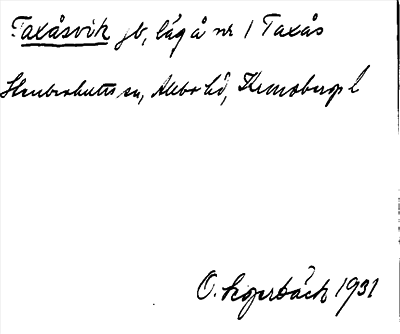 Taxåsvik jb, låg å nr 1 Taxås
Stenbrohults sn, Allbo hd, Kronobergs l
O. Lagerbäck 1931